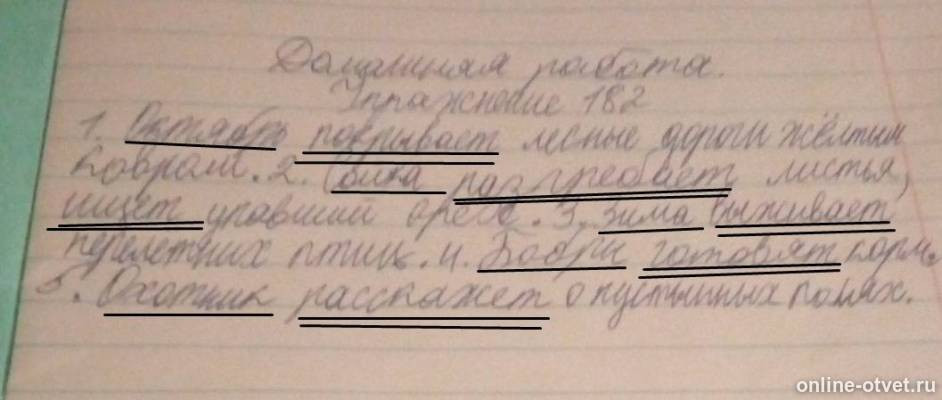 Домашняя работа.
Упражнение 182
1. Октябрь покрывает лесные дороги жёлтым
ковром. 2. Белка разгребает листья,
ищет упавший орех. 3. Зима выживает
перелетних птиц. 4. Бобры готовят корм.
5. Охотник расскажет о пустынных полях.
online-otvet.ru